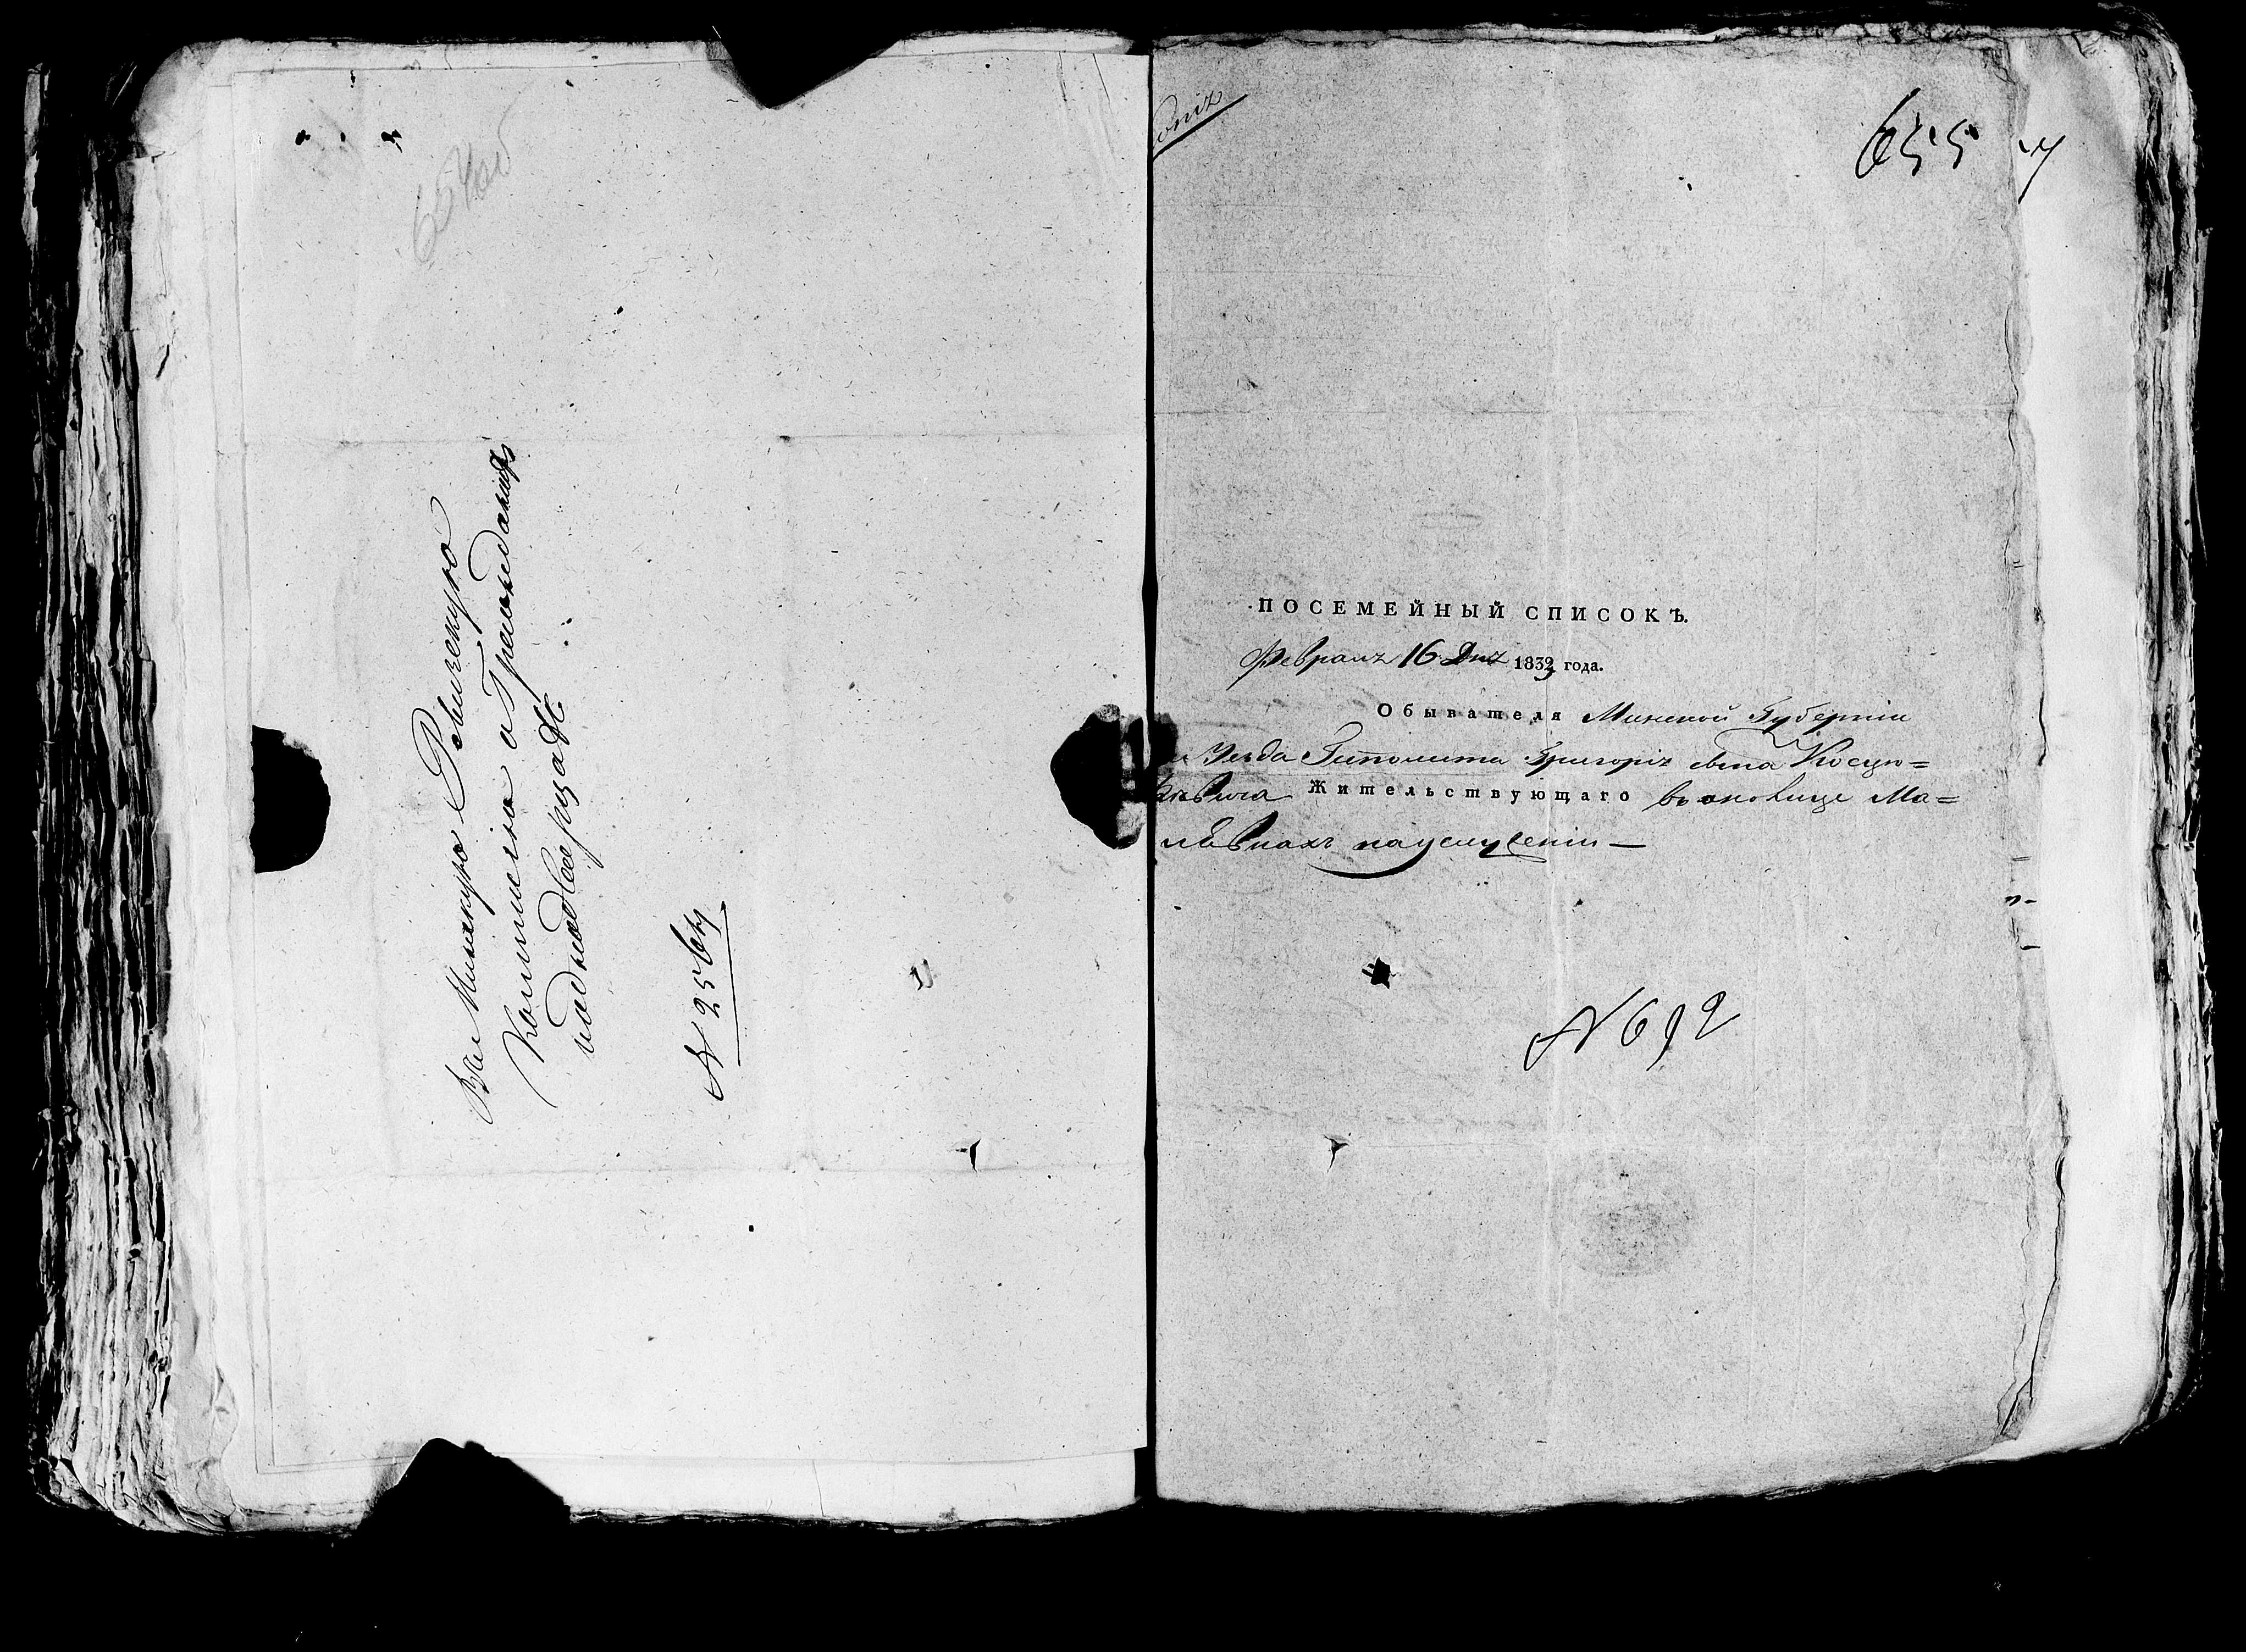 654 об
Въ Минскую Ревизскую
Коммисію о Гражданахъ
и однодворцахъ
N 256
опія
655
ПОСЕМЕЙНЫЙ СПИСОКЪ.
Февраля 16 Дня 1833 года.
Обывателя Минской Губерніи
Уезда Гиполита Григорія сына Косцю=
кевича Жительствующаго въ околице Ма=
на услуженіи —
N 692